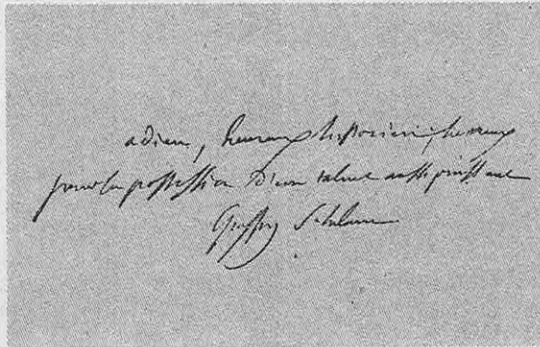 adieu, heureux historien, heureux
la possession d'un talent aussi puissant
Geoffroy St hilaire